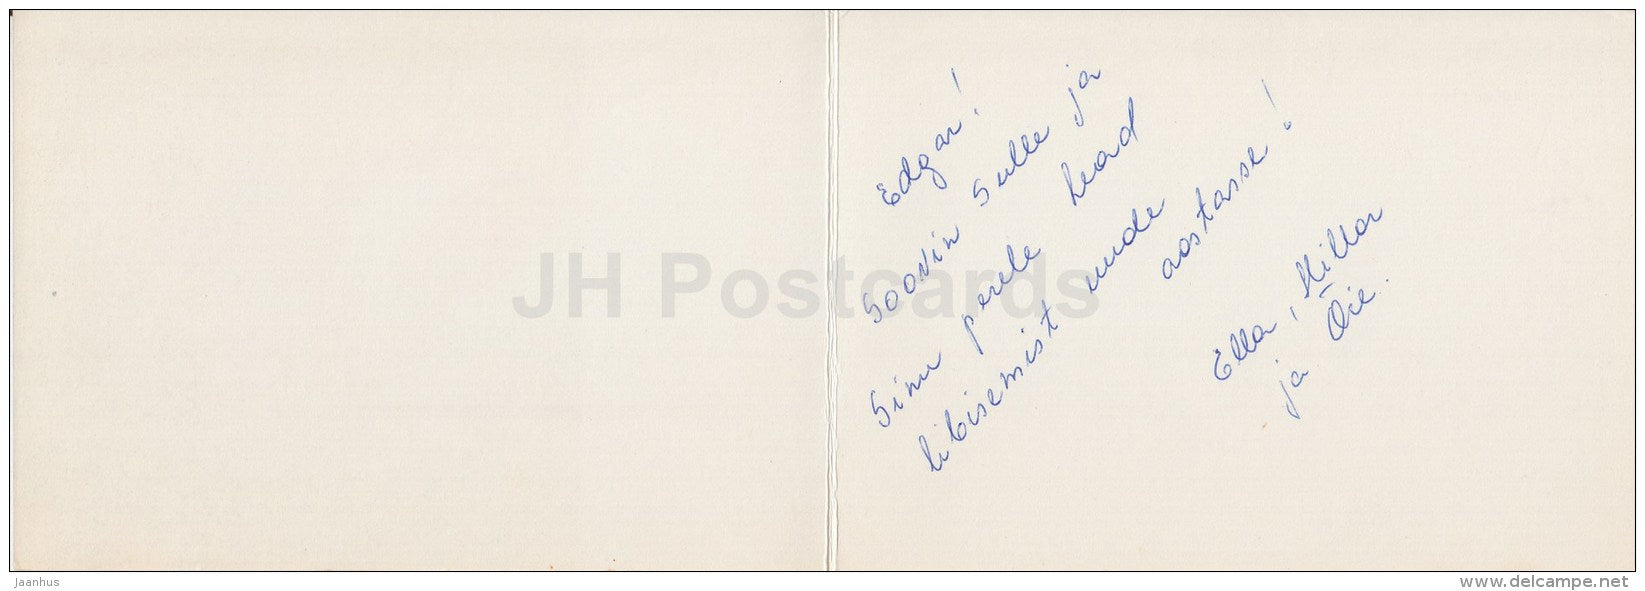 Edgar!
Soovin Sulle ja
Sinu perele head
libisemist uude
aastasse!
Ella, Hillar
ja Õie.
JH Postcards
jaanhus
www.delcampe.net